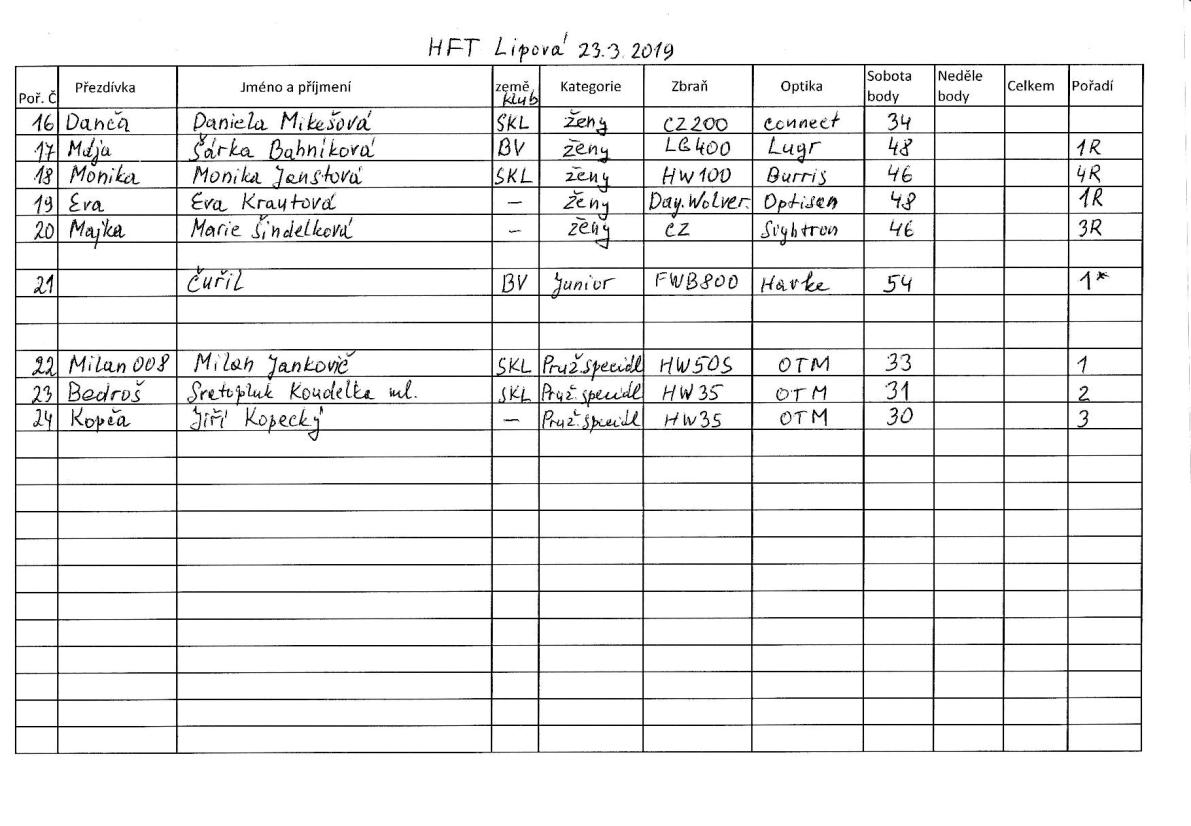 HFT Lipová 23.3.2019
Poř. Č Přezdívka Jméno a příjmení země, klub Kategorie Zbraň Optika Sobota body Neděle body Celkem Pořadí
16 Danča Daniela Mikešová SKL ženy CZ200 connect 34
17 Mája Šárka Bahníková BV ženy LG400 Lugr 48 1R
18 Monika Monika Janstová SKL ženy HW100 Burris 46 4R
19 Eva Eva Krautová – ženy Day.Wolver. Optisan 48 1R
20 Majka Marie Šindelková – ženy CZ Sightron 46 3R
21 Čuřil BV Junior FWB800 Havke 54 1*
22 Milan 008 Milan Jankovič SKL Pruž.speciál HW50S OTM 33 1
23 Bedroš Svatopluk Koudelka ml. SKL Pruž.speciál HW35 OTM 31 2
24 Kopča Jiří Kopecký – Pruž.speciál HW35 OTM 30 3